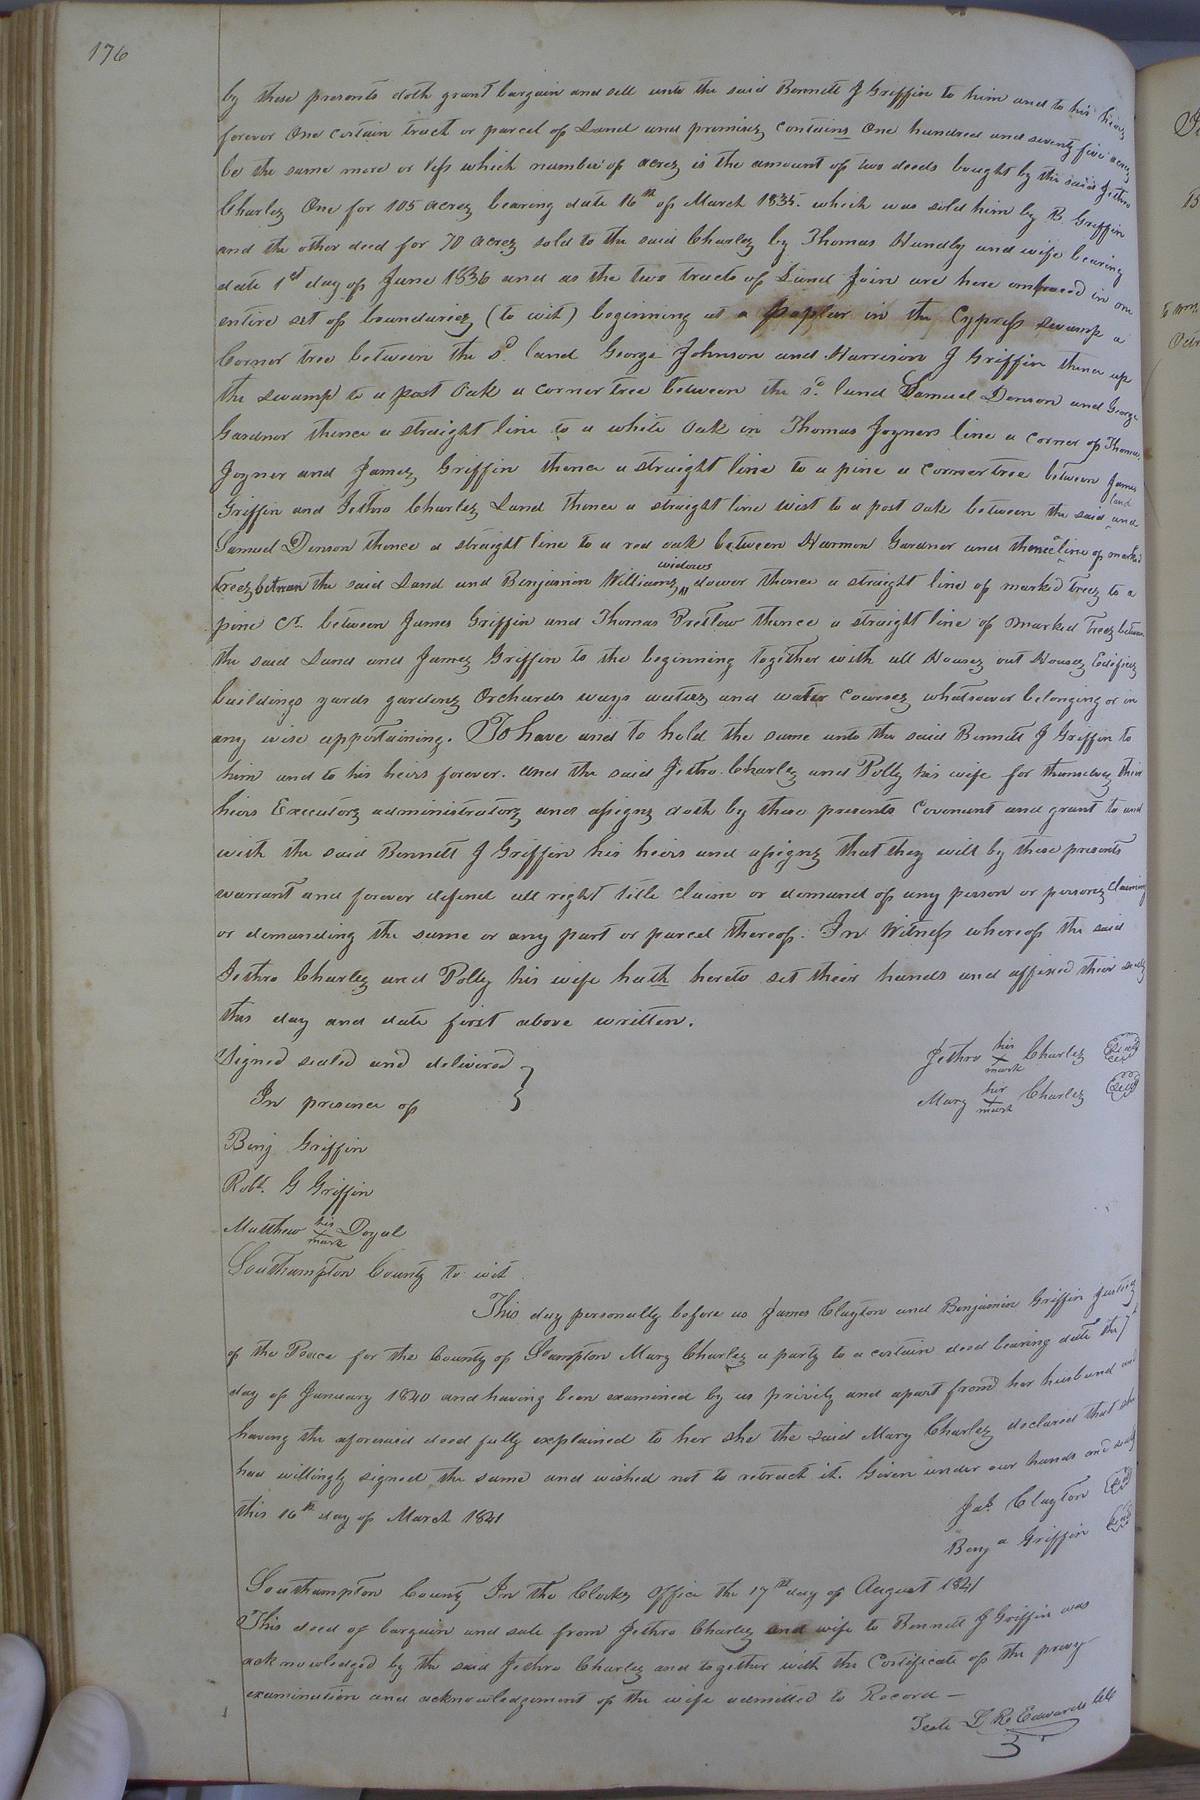 176
by these presents doth grant bargain and sell unto the said Bennett J Griffin to him and to his heirs
forever One certain tract or parcel of Land and premises contains One hundred and seventy five acres
be the same more or less which number of acres is the amount of two deeds bought by the said Jethro
Charles One for 105 acres bearing date 16th of March 1835. which was sold him by R. Griffin
and the other deed for 70 acres sold to the said Charles by Thomas Hundly and wife bearing
date 1st day of June 1836 and as the two tracts of Land Join are here embraced in one
entire set of boundaries (to wit) beginning at a Poplar in the Cypress swamp a
Corner tree between the sd. land George Johnson and Harrison J Griffin thence up
the swamp to a post Oak a corner tree between the sd. land Samuel Denson and George
Gardner thence a straight line to a white Oak in Thomas Joyners line a corner of Thomas
Joyner and James Griffin thence a straight line to a pine a corner tree between James
Griffin and Jethro Charles Land thence a straight line wist to a post oak between the said land and
Samuel Denson thence a straight line to a red oak between Harmon Gardner and thence a line of marked
trees between the said Land and Benjamin Williams widows dower thence a straight line of marked trees to a
pine Cr. between James Griffin and Thomas Pretlow thence a straight line of marked trees between
the said Land and James Griffin to the beginning together with all Houses out Houses Edifices
buildings yards gardens Orchards ways waters and water courses whatsoever belonging or in
any wise appertaining. To have and to hold the same unto the said Bennett J Griffin to
him and to his heirs forever. and the said Jethro Charles and Polly his wife for themselves their
heirs Executors administrators and assigns doth by these presents Covenant and grant to and
with the said Bennett J Griffin his heirs and assigns that they will by these presents
warrant and forever defend all right title claim or demand of any person or persons claiming
or demanding the same or any part or parcel thereof. In Witness whereof the said
Jethro Charles and Polly his wife hath hereto set their hands and affixed their seals
this day and date first above written.
Signed sealed and delivered } Jethro his X mark Charles Seal
In presence of Mary her X mark Charles Seal
Benj Griffin
Robt. G Griffin
Matthew his X mark Doyal
Southampton County to wit
This day personally before us James Clayton and Benjamin Griffin Justices
of the Peace for the County of Sampton Mary Charles a party to a certain deed bearing date the 7th
day of January 1840 and having been examined by us privily and apart from her husband and
having the aforesaid deed fully explained to her she the said Mary Charles declared that she
had willingly signed the same and wished not to retract it. Given under our hands and seals
this 16th day of March 1841
Jas. Clayton Seal
Benj a Griffin Seal
Southampton County In the Clerks Office the 17th day of August 1841
This deed of bargain and sale from Jethro Charles and wife to Bennett J Griffin was
acknowledged by the said Jethro Charles and together with the Certificate of the privy
examination and acknowledgement of the wife admitted to Record —
Teste L R Edwards Clk